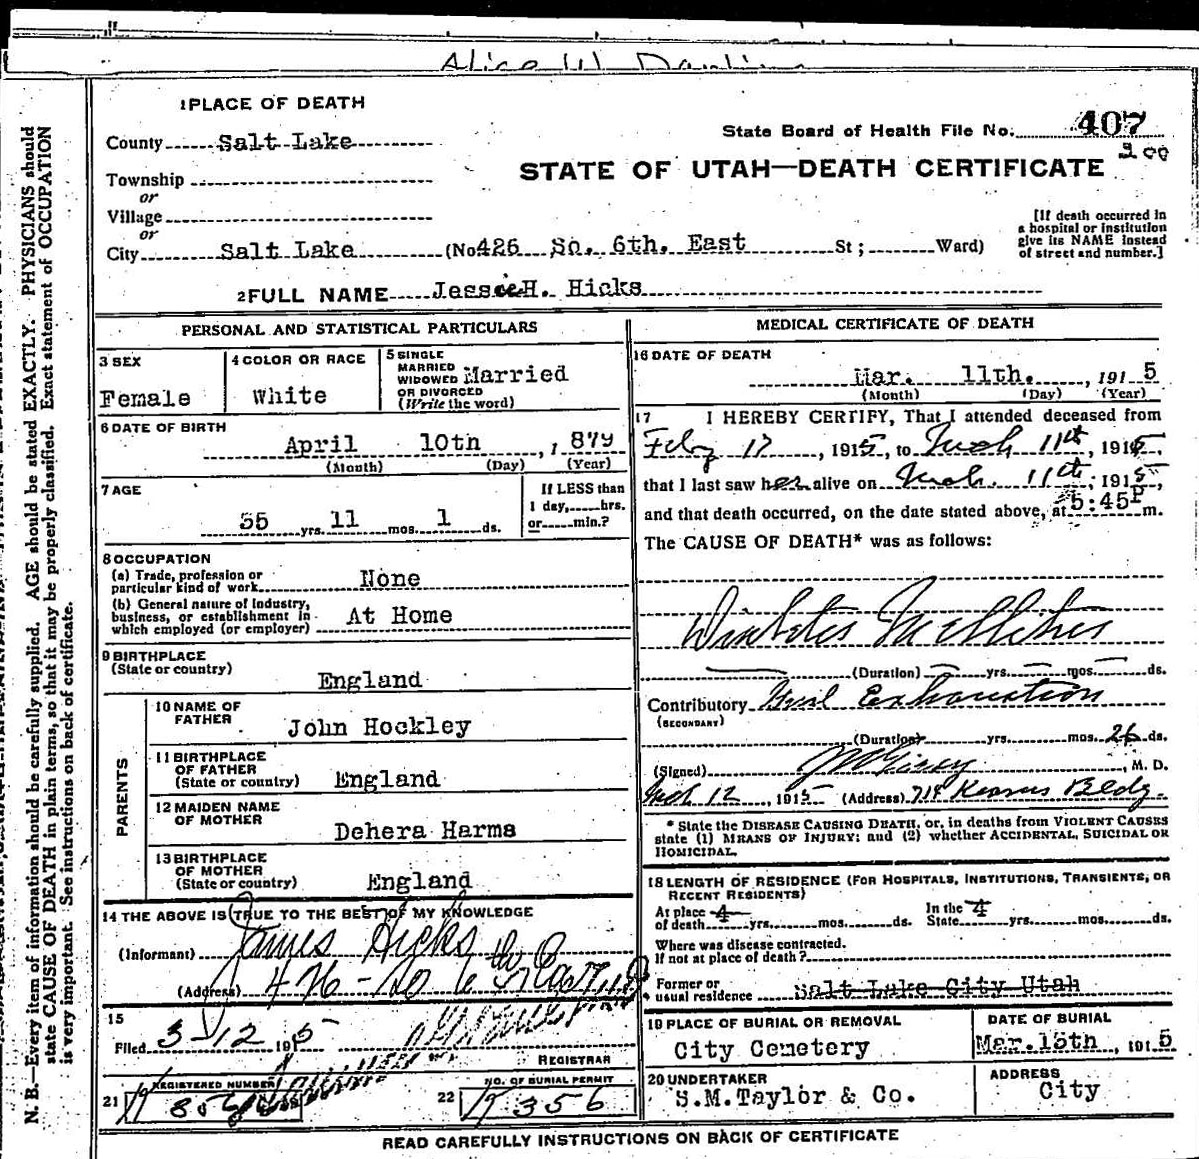 1 PLACE OF DEATH
County Salt Lake
State Board of Health File No. 407
200
STATE OF UTAH—DEATH CERTIFICATE
Township
or
Village
or
City Salt Lake (No 426 So. 6th. East St ; Ward)
[If death occurred in
a hospital or institution
give its NAME instead
of street and number.]
2 FULL NAME Jessie H. Hicks
PERSONAL AND STATISTICAL PARTICULARS
3 SEX
Female
4 COLOR OR RACE
White
5 SINGLE
MARRIED
WIDOWED
OR DIVORCED
(Write the word)
Married
6 DATE OF BIRTH
April 10th , 1 879
(Month) (Day) (Year)
7 AGE
55 yrs. 11 mos. 1 ds.
If LESS than
1 day, hrs.
or min.?
8 OCCUPATION
(a) Trade, profession or
particular kind of work None
(b) General nature of industry,
business, or establishment in
which employed (or employer) At Home
9 BIRTHPLACE
(State or country)
England
PARENTS
10 NAME OF
FATHER
John Hockley
11 BIRTHPLACE
OF FATHER
(State or country) England
12 MAIDEN NAME
OF MOTHER
Dehera Harms
13 BIRTHPLACE
OF MOTHER
(State or country) England
14 THE ABOVE IS TRUE TO THE BEST OF MY KNOWLEDGE
(Informant) James Hicks
(Address) 426 - So 6th East
15
Filed 3 12 191 5
REGISTRAR
REGISTERED NUMBER
21
NO. OF BURIAL PERMIT
22 356
MEDICAL CERTIFICATE OF DEATH
16 DATE OF DEATH
Mar. 11th. , 191 5
(Month) (Day) (Year)
17 I HEREBY CERTIFY, That I attended deceased from
Feby 17 , 1915, to Mch 11th , 1915,
that I last saw her alive on Mch. 11th , 1915,
and that death occurred, on the date stated above, at 5:45 P m.
The CAUSE OF DEATH* was as follows:
Diabetes Mellitus
(Duration) yrs. mos. ds.
Contributory Exhaustion
(SECONDARY)
(Duration) yrs. mos. 26 ds.
(Signed) , M. D.
Mch 12 , 1915 (Address) 714 Kearns Bldg.
* State the DISEASE CAUSING DEATH, or, in deaths from VIOLENT CAUSES
state (1) MEANS OF INJURY; and (2) whether ACCIDENTAL, SUICIDAL OR
HOMICIDAL.
18 LENGTH OF RESIDENCE (FOR HOSPITALS, INSTITUTIONS, TRANSIENTS, OR
RECENT RESIDENTS)
At place
of death 4 yrs. mos. ds.
In the
State 4 yrs. mos. ds.
Where was disease contracted.
If not at place of death ?
Former or
usual residence Salt Lake City Utah
19 PLACE OF BURIAL OR REMOVAL
City Cemetery
DATE OF BURIAL
Mar. 15th , 191 5
20 UNDERTAKER
S.M.Taylor & Co.
ADDRESS
City
READ CAREFULLY INSTRUCTIONS ON BACK OF CERTIFICATE
N. B.—Every item of information should be carefully supplied. AGE should be stated EXACTLY. PHYSICIANS should
state CAUSE OF DEATH in plain terms, so that it may be properly classified. Exact statement of OCCUPATION
is very important. See instructions on back of certificate.